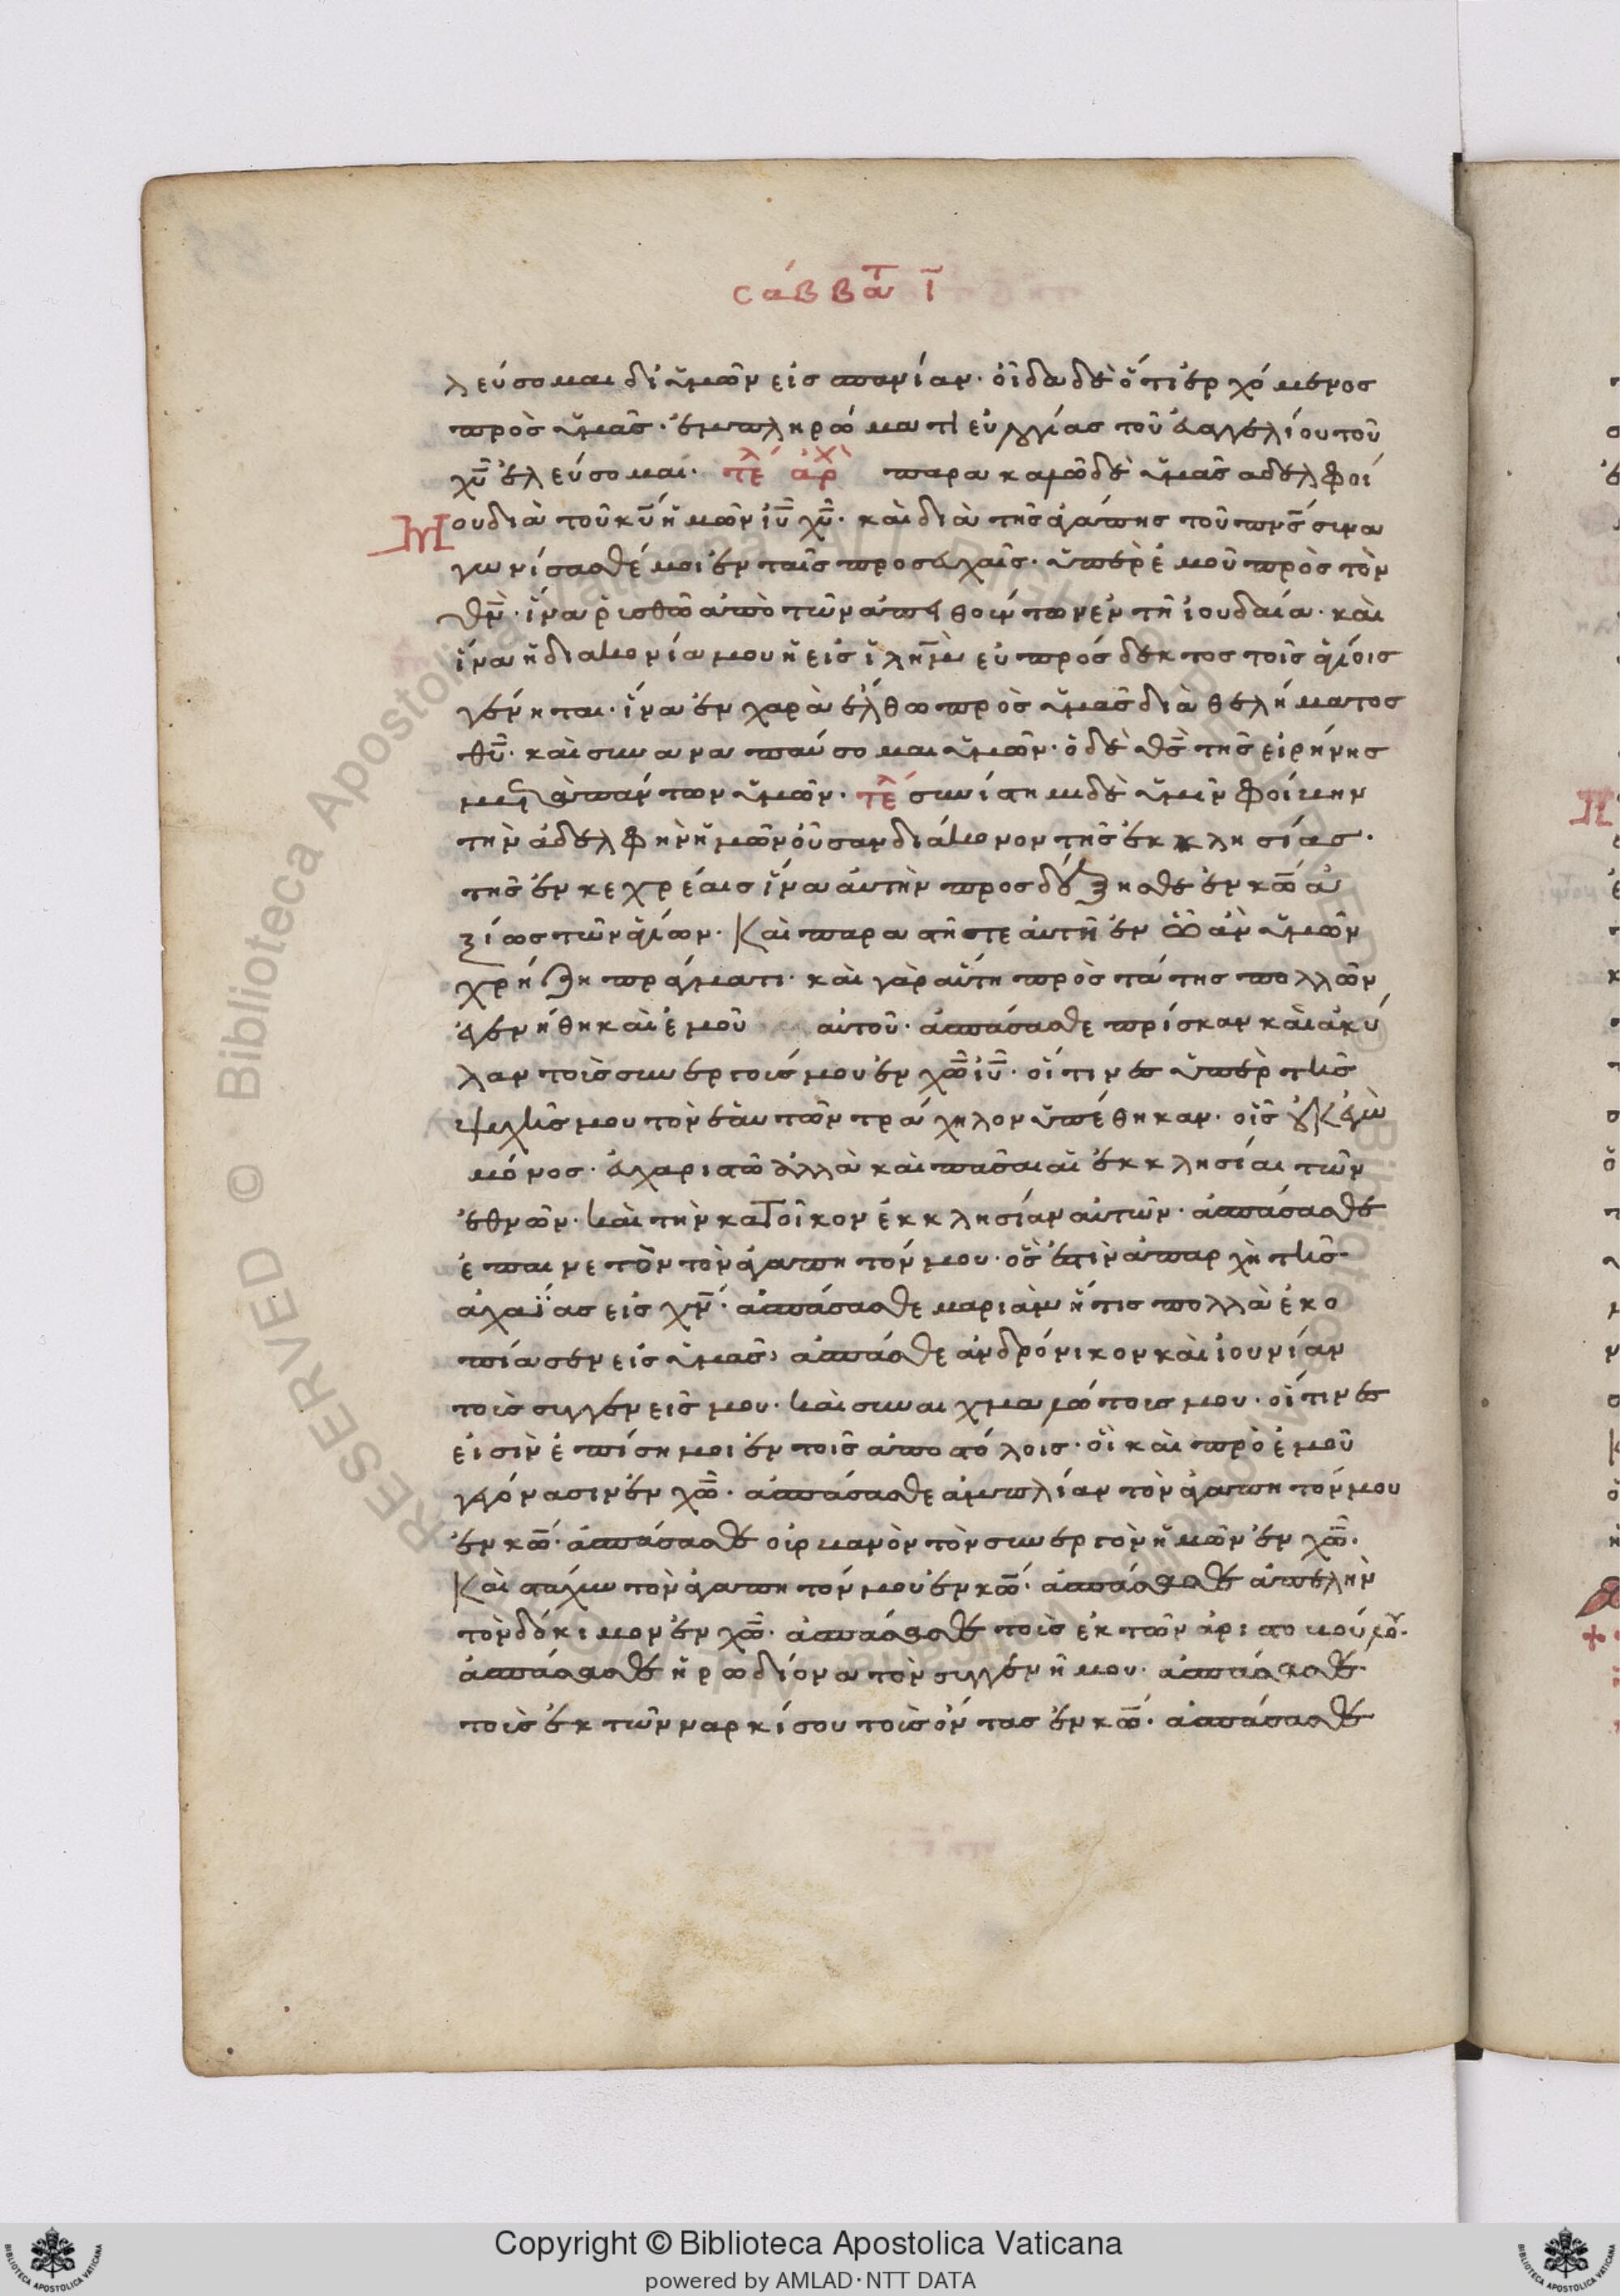 σάββατ ι
λεύσομαι δι ὑμῶν εἰς σπανίαν· οἶδα δὲ ὅτι ἐρχόμενος
πρὸς ὑμᾶς· ἐν πληρώματι εὐλογίας τοῦ εὐαγγελίου τοῦ
χυ ἐλεύσομαι· τελ ἀρχ παρακαλῶ δὲ ὑμᾶς αδελφοί
Μου διὰ τοῦ κυ ἡμῶν ιυ χυ· καὶ διὰ τῆς ἀγάπης τοῦ πνς συνα
γωνίσασθέ μοι ἐν ταῖς προσευχαῖς· ὑπὲρ ἐμοῦ πρὸς τὸν
θν· ἵνα ῥισθῶ ἀπὸ τῶν ἀπειθούντων ἐν τῆ ἰουδαία· καὶ
ἵνα ἡ διακονία μου ἡ εἰς ἱλημ εὐπρόσδεκτος τοῖς ἁγίοις
γένηται· ἵνα ἐν χαρὰ ἔλθω πρὸς ὑμᾶς διὰ θελήματος
θυ· καὶ συναναπαύσομαι ὑμῶν· ὁ δὲ θς τῆς εἰρήνης
μετὰ πάντων ὑμῶν· τελ συνίστημι δὲ ὑμῖν φοίβην
τὴν ἀδελφὴν ἡμῶν οὖσαν διάκονον τῆς ἐκκλησίας·
τῆς ἐν κεχρέαις ἵνα αὐτὴν προσδέξησθε ἐν κω ἀ
ξίως τῶν ἁγίων· Καὶ παραστῆτε αὐτῆ ἐν ὧ ἀν ὑμῶν
χρήζη πράγματι· καὶ γὰρ αὕτη προστάτης πολλῶν
ἐγενήθη καὶ ἐμοῦ αὐτοῦ· ἀσπάσασθε πρίσκαν καὶ ἀκύ
λαν τοὺς συνεργούς μου ἐν χω ιυ· οἵτινες ὑπὲρ τῆς
ψυχῆς μου τὸν ἑαυτῶν τράχηλον ὑπέθηκαν· οἷς οὐκ ἐγὼ
μόνος· εὐχαριστῶ ἀλλὰ καὶ πᾶσαι αἱ ἐκκλησίαι τῶν
ἐθνῶν· καὶ τὴν κατοῖκον ἐκκλησίαν αὐτῶν· ἀσπάσασθε
ἐπαινετὸν τὸν ἀγαπητόν μου· ὅς ἐστὶν ἀπαρχὴ τῆς
ἀχαΐας εἰς χν· ἀσπάσασθε μαριὰμ ἥτις πολλὰ ἐκο
πίασεν εἰς ὑμᾶς, ἀσπάσθε ἀνδρόνικον καὶ ἰουνίαν
τοὺς συγγενεῖς μου· καὶ συναιχμαλώτους μου· οἵτινες
εἰσὶν ἐπίσημοι ἐν τοῖς ἀποστόλοις· οἳ καὶ πρὸ ἐμοῦ
γεγόνασιν ἐν χω· ἀσπάσασθε ἀμπλίαν τὸν ἀγαπητόν μου
ἐν κω· ἀσπάσασθε οὐρβανὸν τὸν συνεργὸν ἡμῶν ἐν χω·
Καὶ στάχυν τὸν ἀγαπητόν μου ἐν κω· ἀσπάσασθε ἀπελὴν
τὸν δόκιμον ἐν χω· ἀσπάσασθε τοὺς ἐκ τῶν ἀριστοβούλου·
ἀσπάσασθε ἡρωδίονα τὸν συγγενῆ μου· ἀσπάσασθε
τοὺς ἐκ τῶν ναρκίσου τοὺς ὄντας ἐν κω· ἀσπάσασθε
Copyright © Biblioteca Apostolica Vaticana
powered by AMLAD·NTT DATA